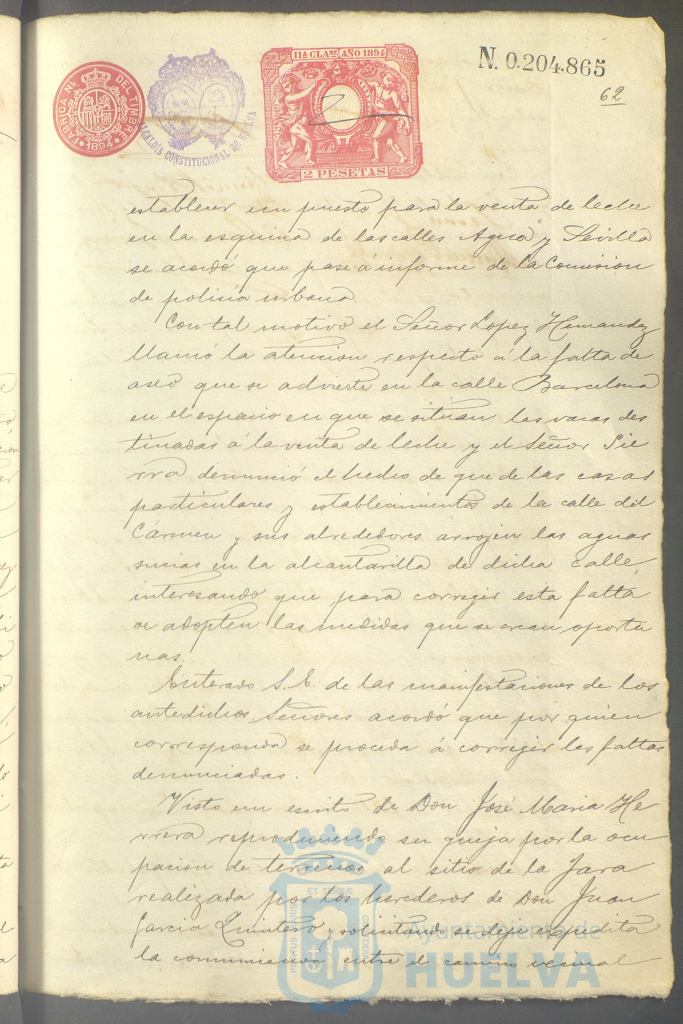 11ª CLASE AÑO 1894
N. 0.204.865
62
FABRICA NL. DEL TIMBRE
1894
ALCALDIA CONSTITUCIONAL DE HUELVA
2 PESETAS
establecer un puesto para la venta de leche
en la esquina de las calles Agua y Sevilla
se acordó que pase á informe de la Comision
de policía urbana.
Con tal motivo el Señor Lopez Hernandez
llamó la atencion respecto á la falta de
aseo que se advierte en la calle Barcelona
en el espacio en que se situan las vacas des
tinadas á la venta de leche y el Señor Sie
rra denunció el hecho de que de las casas
particulares y establecimientos de la calle del
Cármen y sus alrededores arrojen las aguas
sucias en la alcantarilla de dicha calle,
interesando que para corregir esta falta
se adopten las medidas que se crean oportu
nas.
Enterado S.E. de las manifestaciones de los
antedichos Señores acordó que por quien
corresponda se proceda á corregir las faltas
denunciadas.
Visto un escrito de Don José Maria He
rrera reproduciendo su queja por la ocu
pacion de terrenos al sitio de la Jara
realizada por los herederos de Don Juan
Garcia Quintero y solicitando se deje expedita
la comunicacion entre el camino vecinal
ET TERRAE
PORTUS MARIS
CUSTODIA
Ayuntamiento de
HUELVA